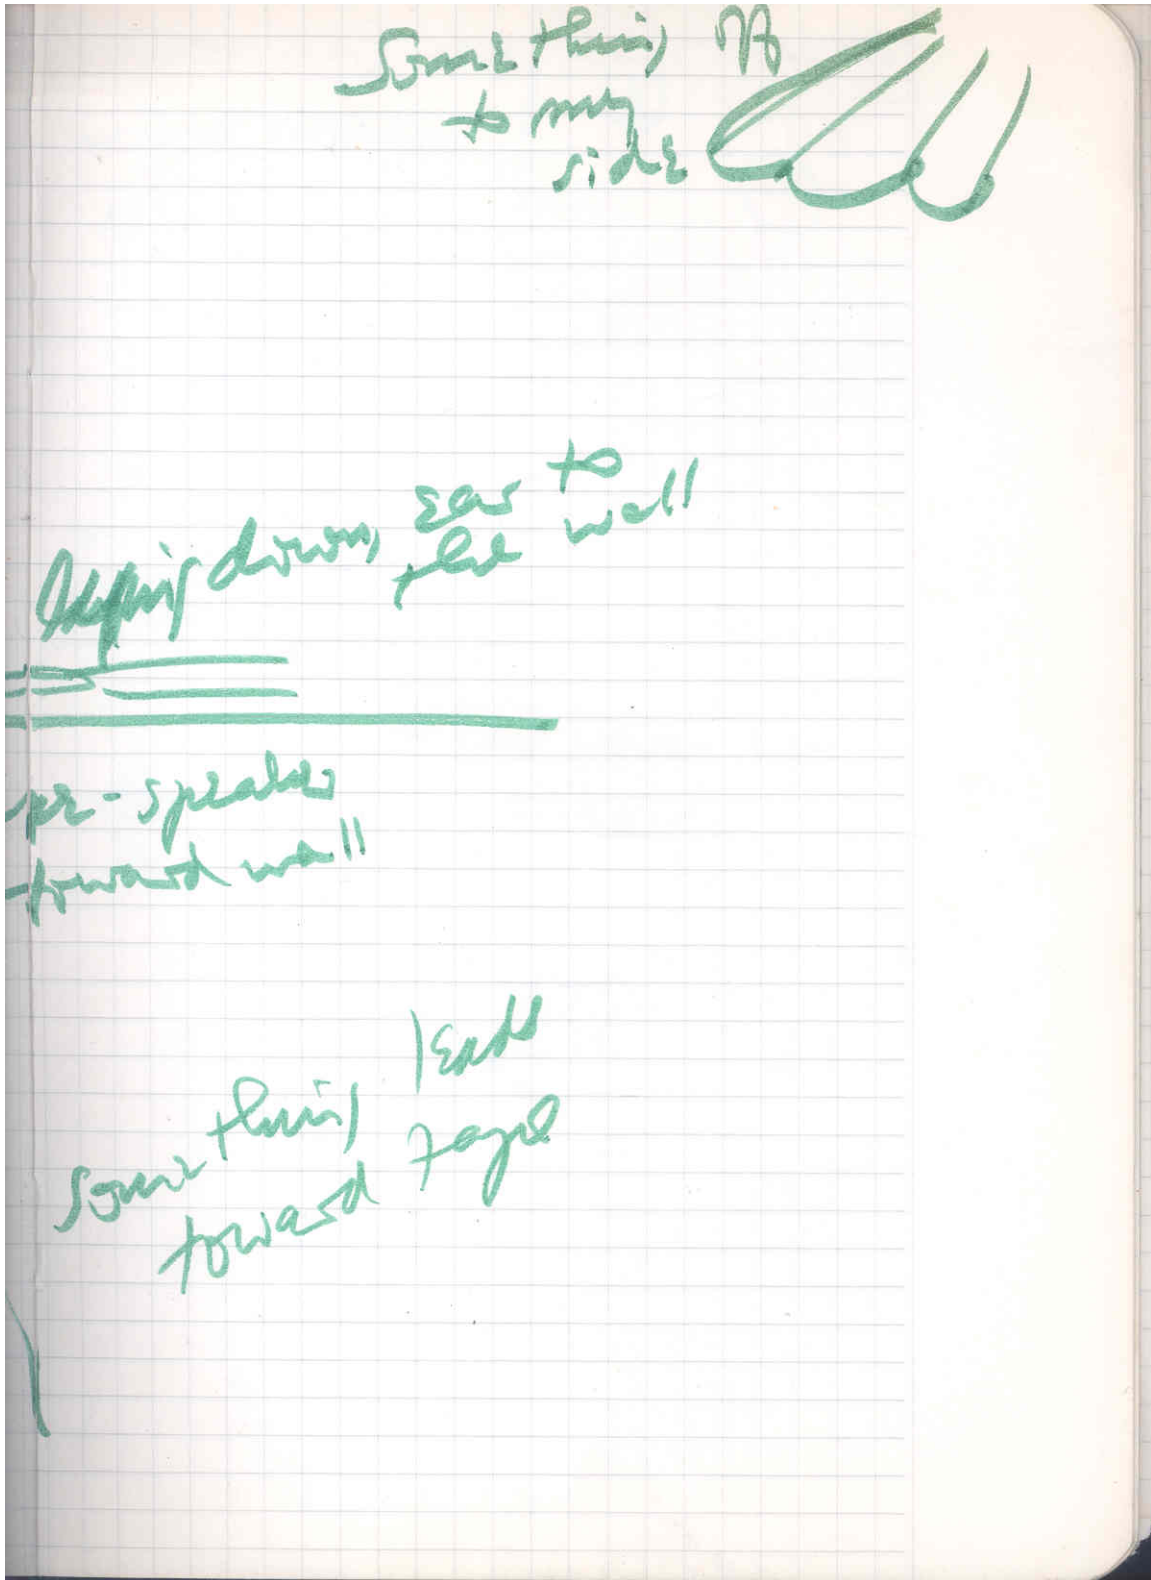 Something off
to my
side
down, ear to
the wall
- speaker
toward wall
something leads
toward